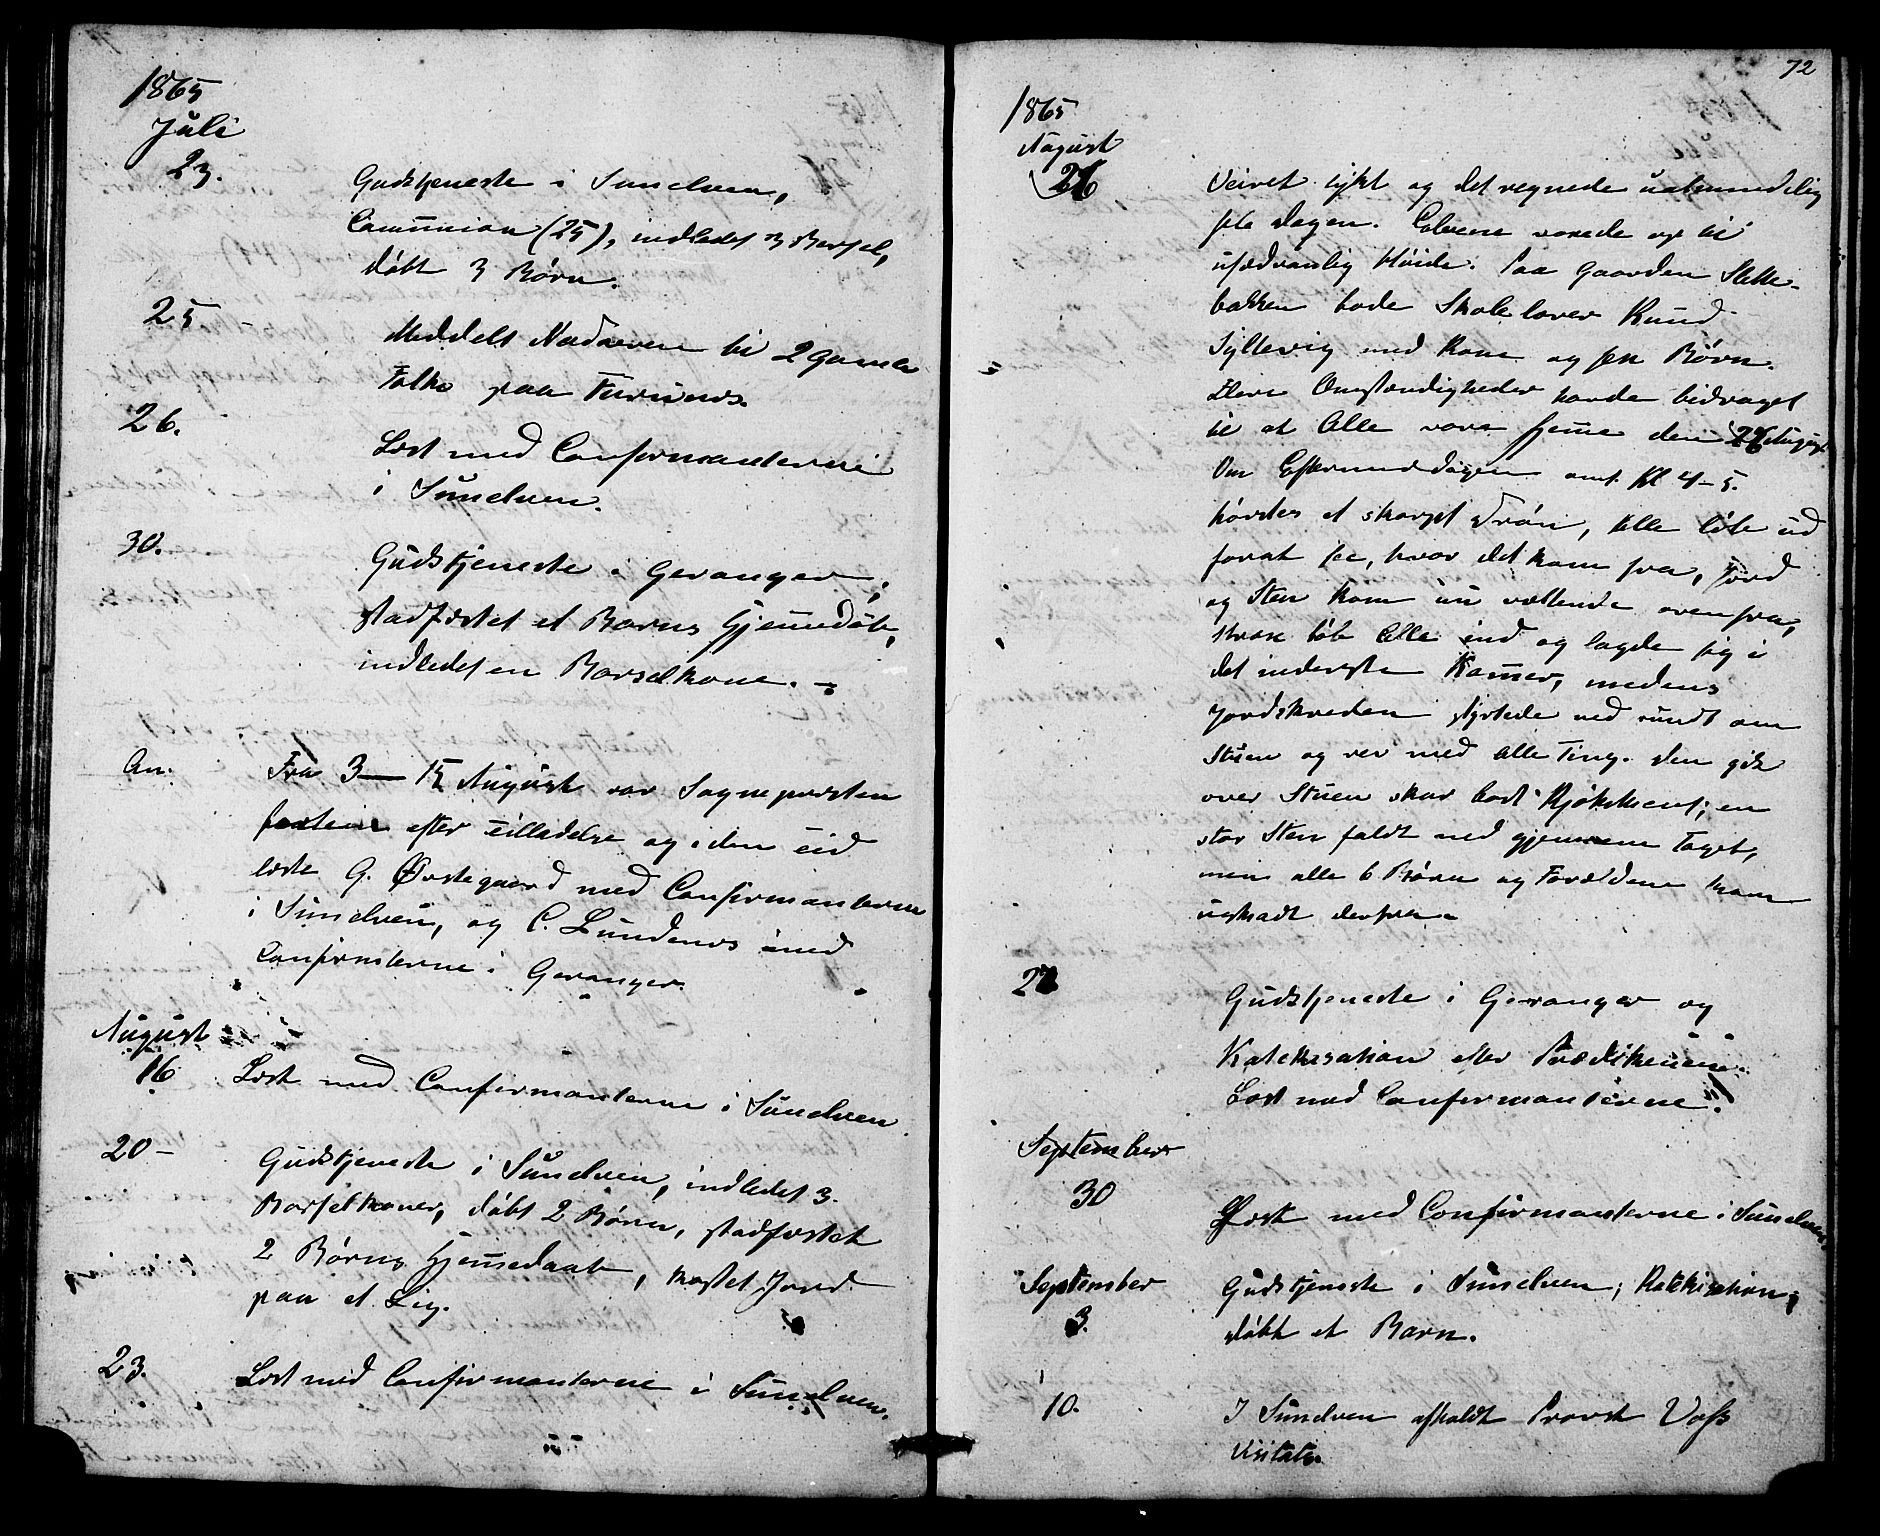 1865
Juli
23. Gudstjeneste i Sunelven,
Communion (25), indledet 3 Barsel,
døbt 3 Børn.
25 – Meddelt Nadveren til 2 gamle
Folk paa Furunes.
26. Læst med Confirmanterne
i Sunelven.
30. Gudstjeneste i Geranger,
stadfæstet et Barns Hjemmedøb,
indledet en Barselkone. –
An. Fra 3 – 15 August var Sognepresten
efter Tilladelse og i den Tid
læste G. Østegaard med Confirmanterne
i Sunelven, og C. Lundenes med
Confirmterne i Geranger.
August
16 Læst med Confirmanterne i Sunelven.
20 – Gudstjeneste i Sunelven, indledet 3.
Barselkoner, døbt 2 Børn, stadfæstet
2 Børns Hjemmedaab, kastet Jord
paa et Lig.
23. Læst med Confirmanterne i Sunelven.
72
1865
August
26 Veiret tykt og det regnede ualmindelig
hele Dagen. Elvene voxede op til
usædvanlig Høide. Paa Gaarden Slette-
bakken bode Skolelærer Knud
Syltevig med Kone og sex Børn.
Flere Omstændigheder havde bidraget
til at Alle vare hjemme den 26 August.
Om Eftermiddagen omt. Kl 4–5.
hørdes et skarpt Drøn, Alle løbe ud
forat see, hvor det kom fra, Jord
og Sten kom nu væltende ovenfra,
strax løb Alle ind og lagde sig i
det inderste Kammer, medens
Jordskreden styrtede ned rundt om
Stuen og rev med alle Ting. den gik
over Stuen skar bort Kjøkkenet; en
stor Sten faldt ned gjennem Taget,
men alle 6 Børn og Forældrene kom
uskadt derfra.
27 Gudstjeneste i Geranger og
Katekisation efter Prædikenen.
Læst med Confirmanterne.
September
30 Læst med Confirmanterne i Sunelven.
September Gudstjeneste i Sunelven; Katekisation;
3. døbt et Barn.
10. I Sunelven afholdt Provst Voss
Visitats.